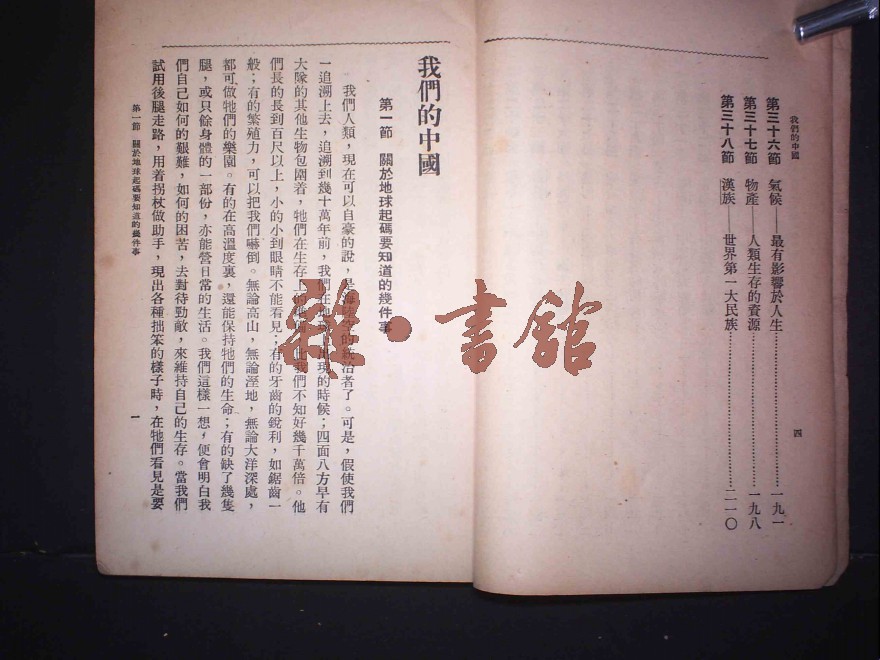 我們的中國
第三十六節　氣候——最有影響於人生……一九一
第三十七節　物產——人類生存的資源……一九八
第三十八節　漢族——世界第一大民族……二一〇
四
我們的中國
第一節　關於地球起碼要知道的幾件事
我們人類，現在可以自豪的說，是海陸空的統治者了。可是，假使我們
一追溯上去，追溯到幾十萬年前，我們在地球上出現的時候；四面八方早有
大隊的其他生物包圍着，牠們在生存上的 比我們不知好幾千萬倍。他
們長的長到百尺以上，小的小到眼睛不能看見；有的牙齒的銳利，如鋸齒一
般；有的繁殖力，可以把我們嚇倒。無論高山，無論溼地，無論大洋深處，
都可做牠們的樂園。有的在高溫度裏，還能保持牠們的生命；有的缺了幾隻
腿，或只餘身體的一部份，亦能營日常的生活。我們這樣一想，便會明白我
們自己如何的艱難，如何的困苦，去對待勁敵，來維持自己的生存。當我們
試用後腿走路，用着拐杖做助手，現出各種拙笨的樣子時，在牠們看見是要
第一節　關於地球起碼要知道的幾件事
一
雅·書館